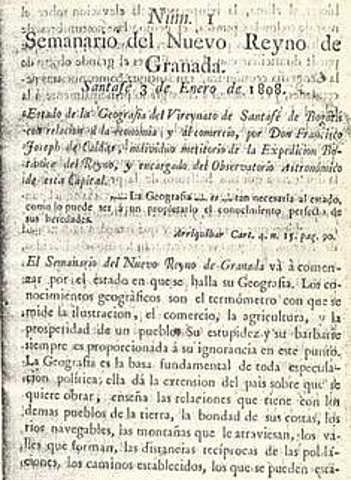 Núm. 1
Semanario del Nuevo Reyno de
Granada.
Santafé 3 de Enero de 1808.
Estado de la Geografía del Vireynato de Santafé de Bogotá
con relacion á la economía, y al comercio, por Don Francisco
Joseph de Caldas, individuo meritorio de la Expedicion Bo-
tánica del Reyno, y encargado del Observatorio Astronómico
de esta Capital.
La Geografía es tan necesaria al estado,
como lo puede ser á un propietario el conocimiento perfecto de
sus heredades.
Arriquibar Cart. 4. n. 15. pag. 90.
El Semanario del Nuevo Reyno de Granada vá á comen-
zar por el estado en que se halla su Geografía. Los co-
nocimientos geográficos son el termómetro con que se
mide la ilustracion, el comercio, la agricultura, y la
prosperidad de un pueblo. Su estupidez y su barbarie
siempre es proporcionada á su ignorancia en este punto.
La Geografía es la basa fundamental de toda especula-
cion política; ella dá la extension del pais sobre que se
quiere obrar, enseña las relaciones que tiene con los
demas pueblos de la tierra, la bondad de sus costas, los
rios navegables, las montañas que le atraviesan, los va-
lles que forman, las distancias recíprocas de las pobla-
ciones, los caminos establecidos, los que se pueden esta-